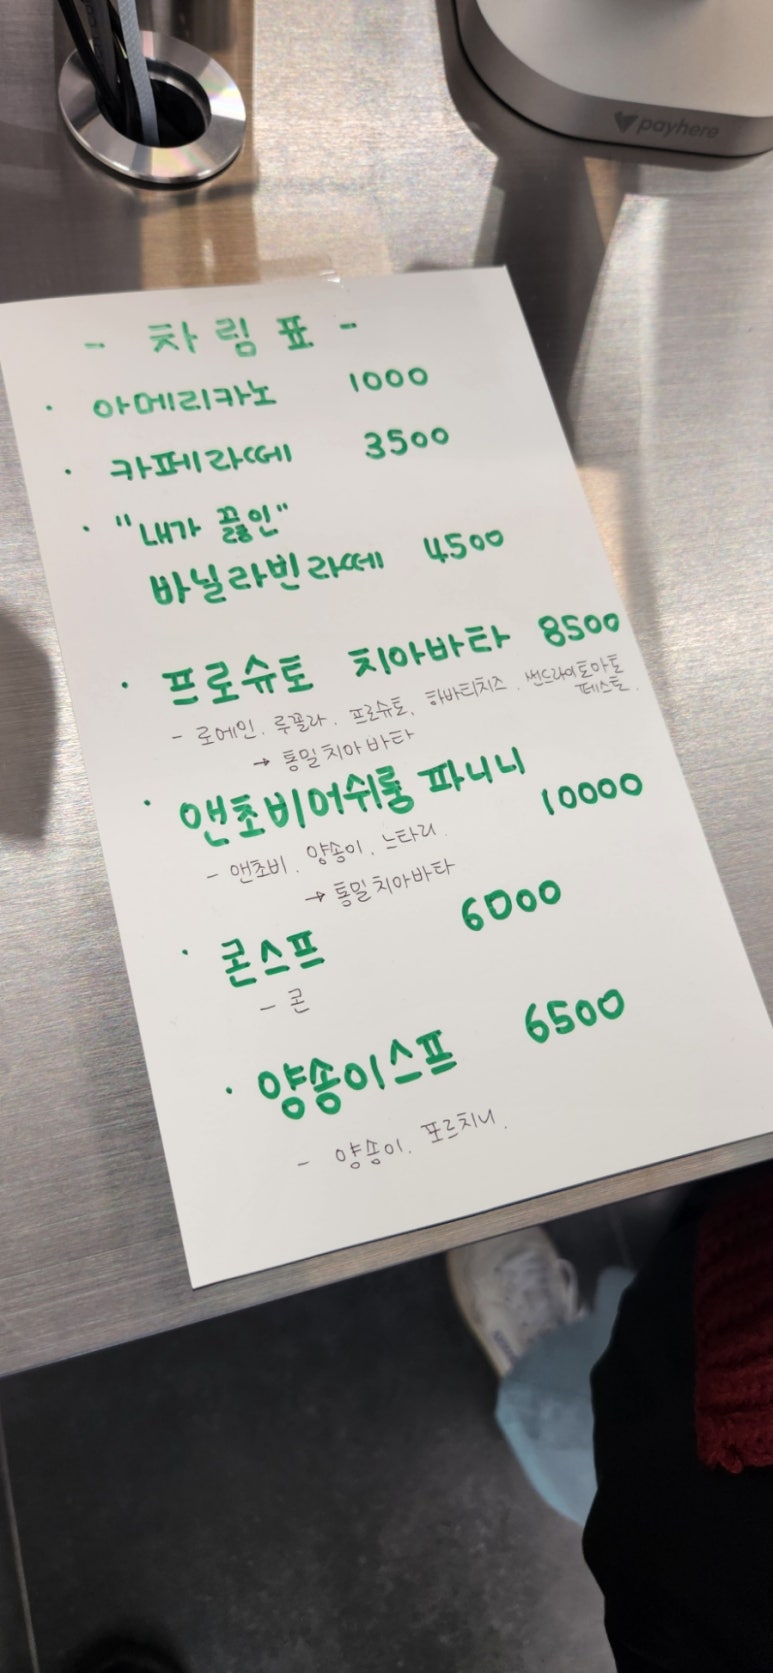 payhere
- 차림표 -
· 아메리카노 1000
· 카페라떼 3500
· "내가 끓인"
바닐라빈라떼 4500
· 프로슈토 치아바타 8500
- 로메인. 루꼴라. 프로슈토. 하바티치즈. 썬드라이토마토
페스토.
→ 통밀치아바타
· 앤초비머쉬룸 파니니
10000
- 앤초비. 양송이. 느타리.
→ 통밀치아바타
· 콘스프 6000
- 콘
· 양송이스프 6500
- 양송이. 포르치니.